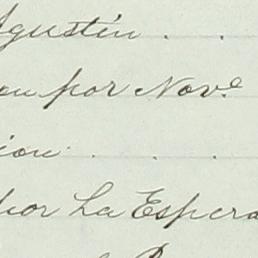 Agustín . .
ou por Nov.e
ion . . .
por La Espera